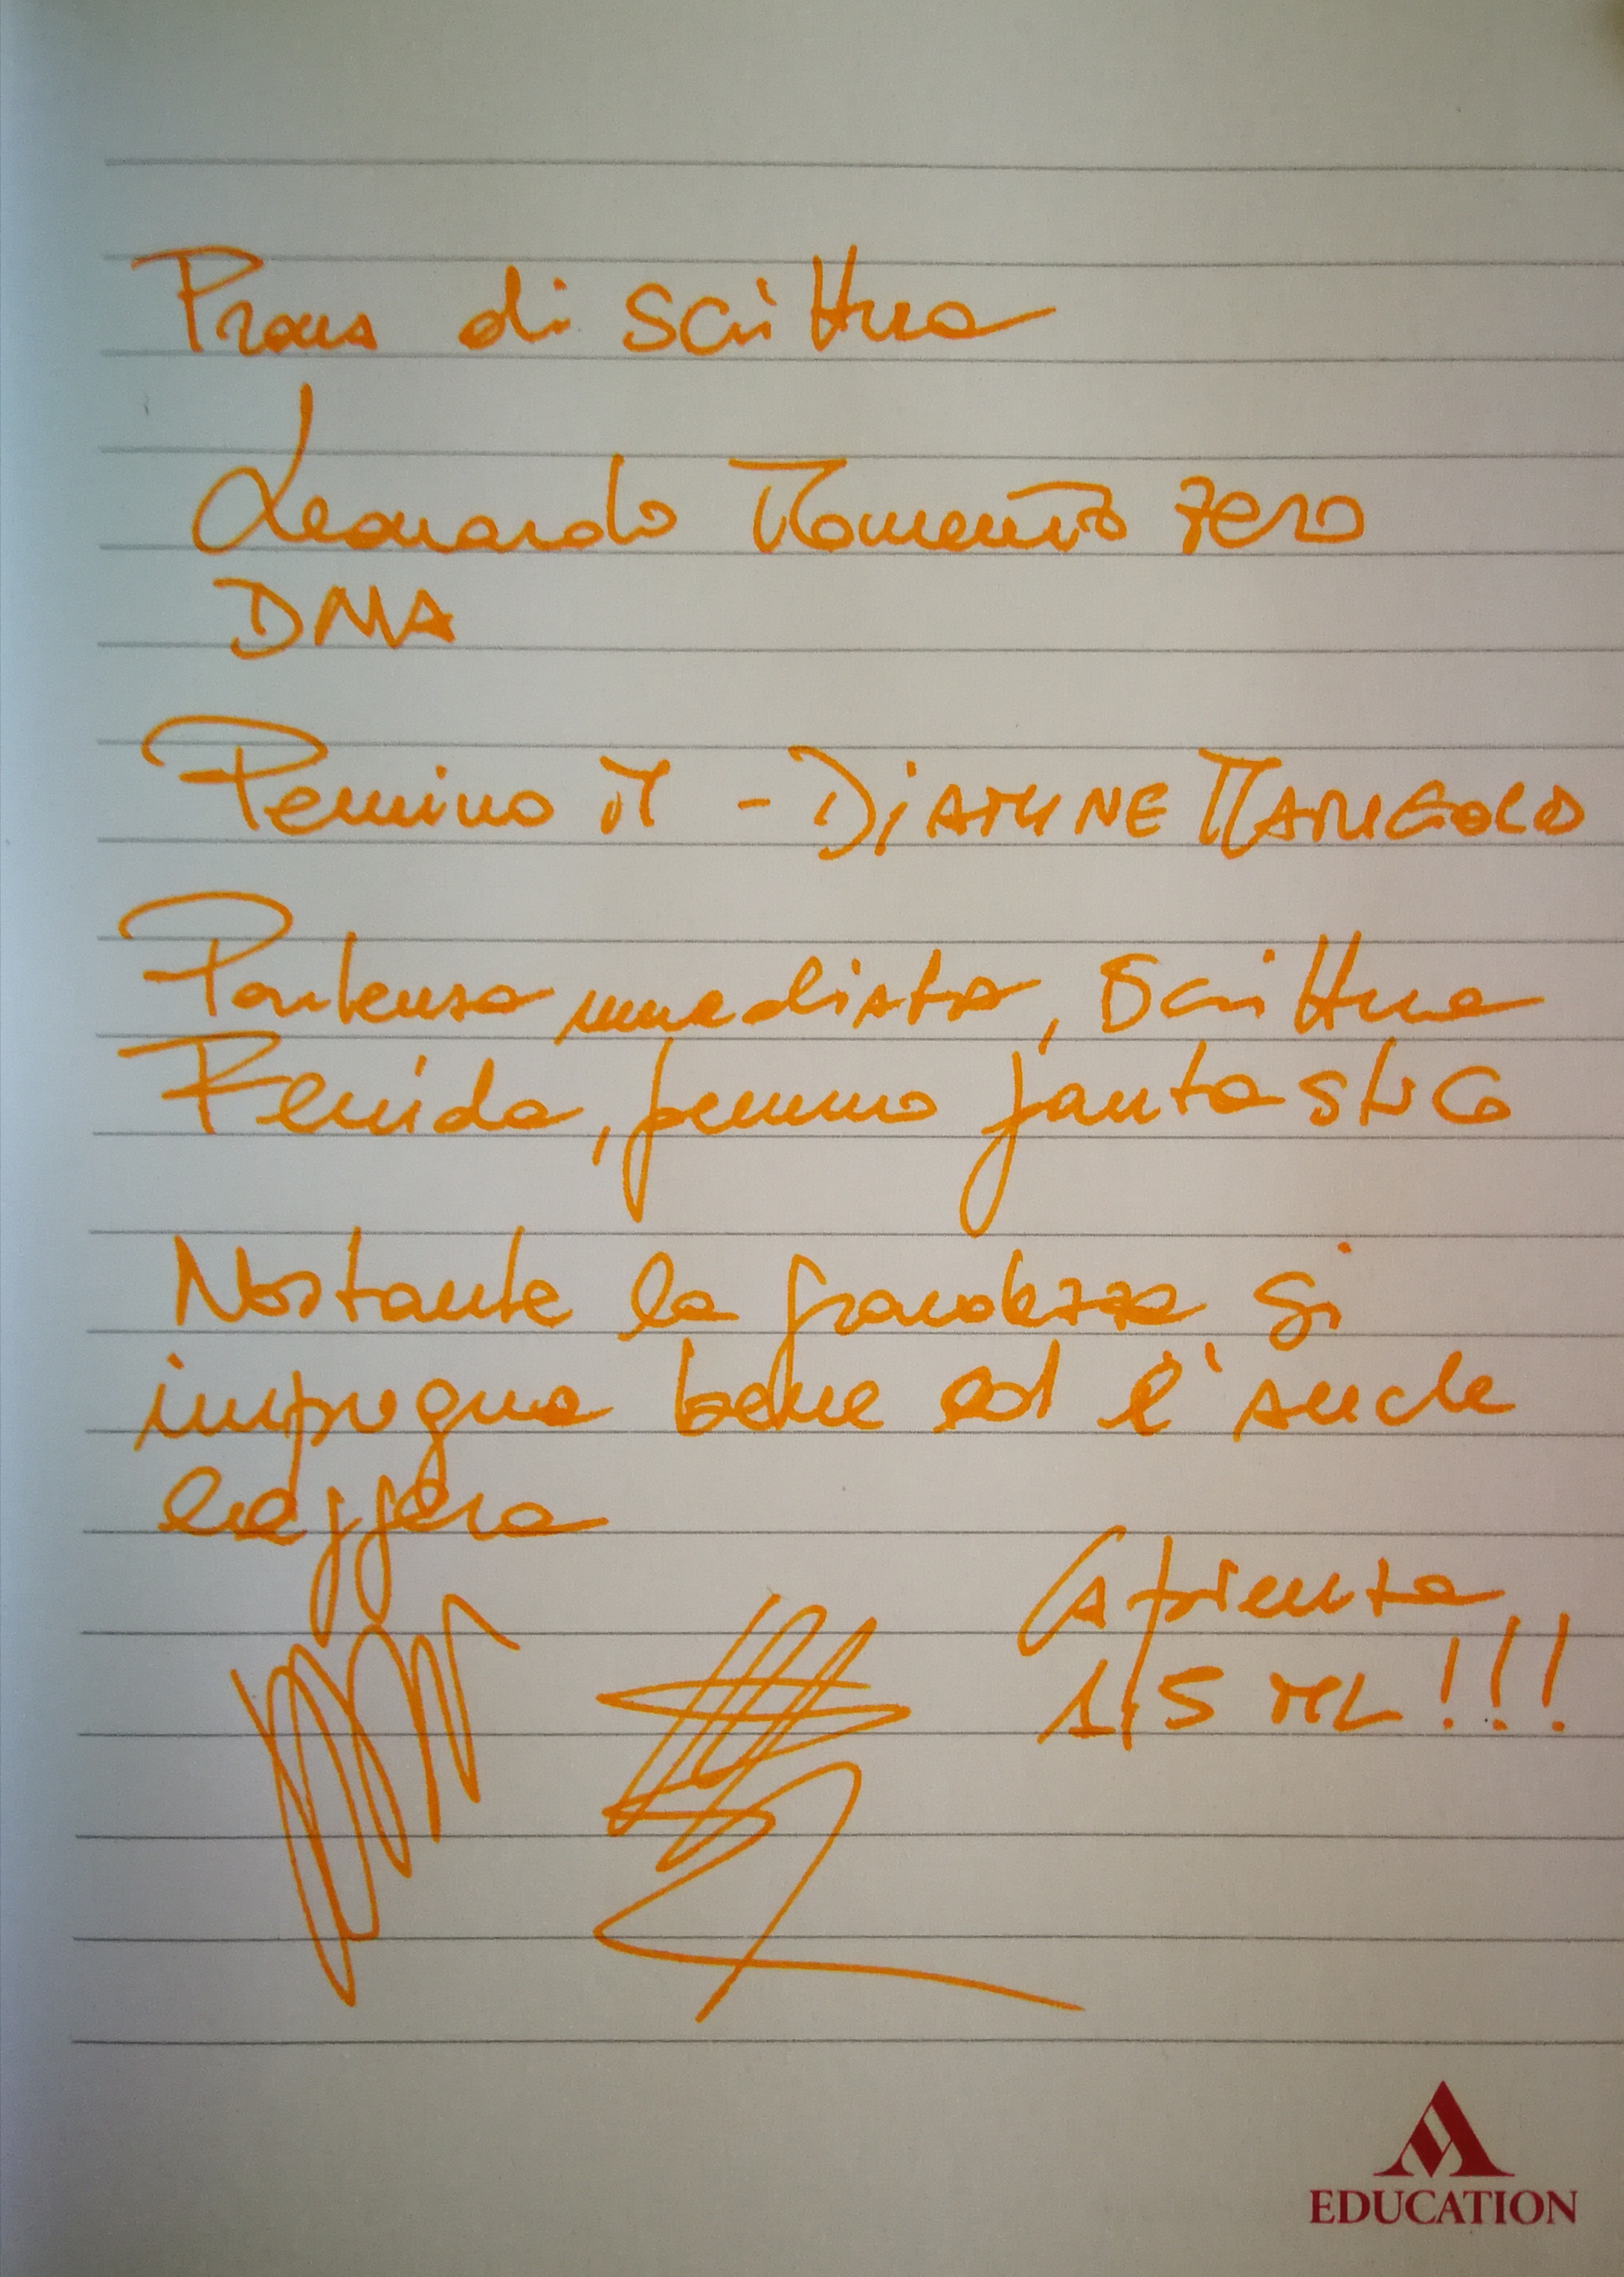 Prova di scrittura
Leonardo Momento Zero
DNA
Pennino M - DIAMINE MARIGOLD
Partenza immediata, scrittura
Fluida, pennino fantastico
Nostante la grandezza si
impugna bene ed è anche
leggera
Capienza
1,5 ML!!!
EDUCATION